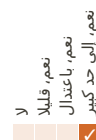 لا
نعم، قليلا
نعم، باعتدال
نعم، إلى حد كبير